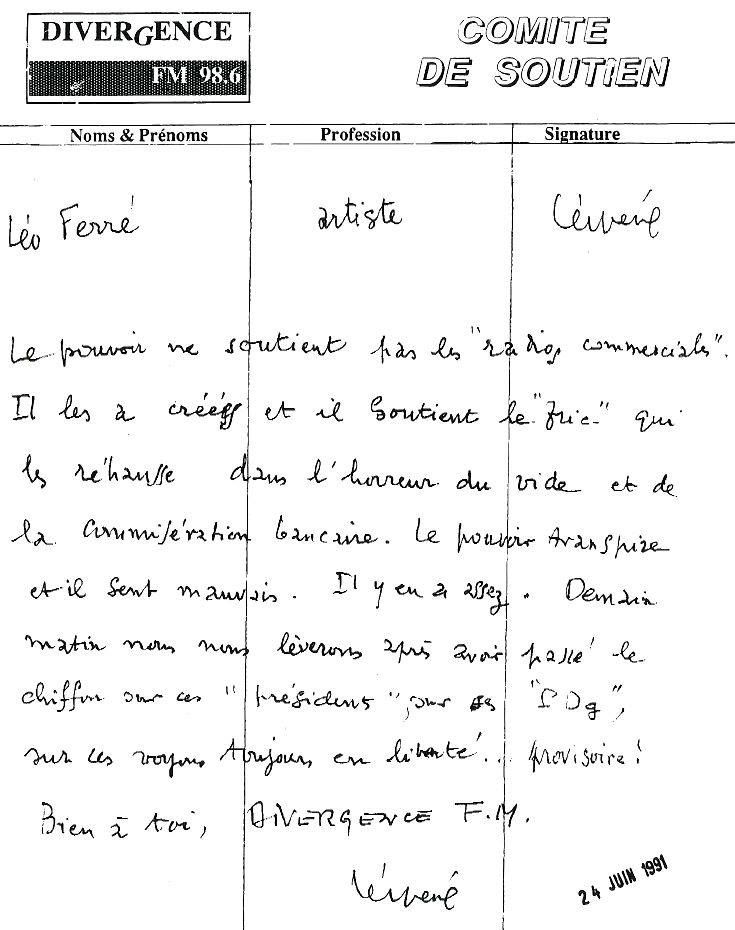 DIVERGENCE
FM 98.6
COMITE
DE SOUTIEN
Noms & Prénoms Profession Signature
Léo Ferré artiste
Le pouvoir ne soutient pas les "radios commerciales".
Il les a créées et il soutient le "fric" qui
les réhausse dans l'horreur du vide et de
la commisération bancaire. Le pouvoir transpire
et il sent mauvais. Il y en a assez. Demain
matin nous nous lèverons après avoir passé le
chiffon sur ces "présidents", sur ces "PDg",
sur ces voyous toujours en liberté... provisoire!
Bien à toi, DIVERGENCE F.M.
24 JUIN 1991